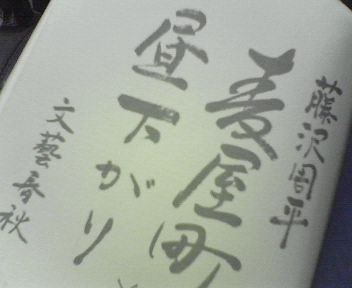 藤沢周平
麦屋町
昼下がり
文藝春秋